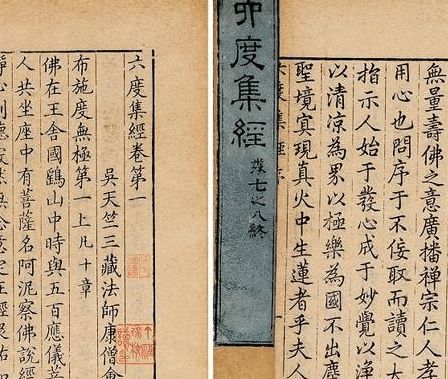 六度集經卷第一
吳天竺三藏法師康僧會
布施度無極第一上凡十章
佛在王舍國鷂山中時與五百應儀菩
人共坐座中有菩薩名阿泥察佛說經
六度集經
七之八終
無量壽佛之意廣播禪宗仁人孝
用心也問序于不佞取而讀之大
指示人始于發心成于妙覺以淨
以清凉為界以極樂為國不出塵
聖境寘現真火中生蓮者乎夫人
度集經